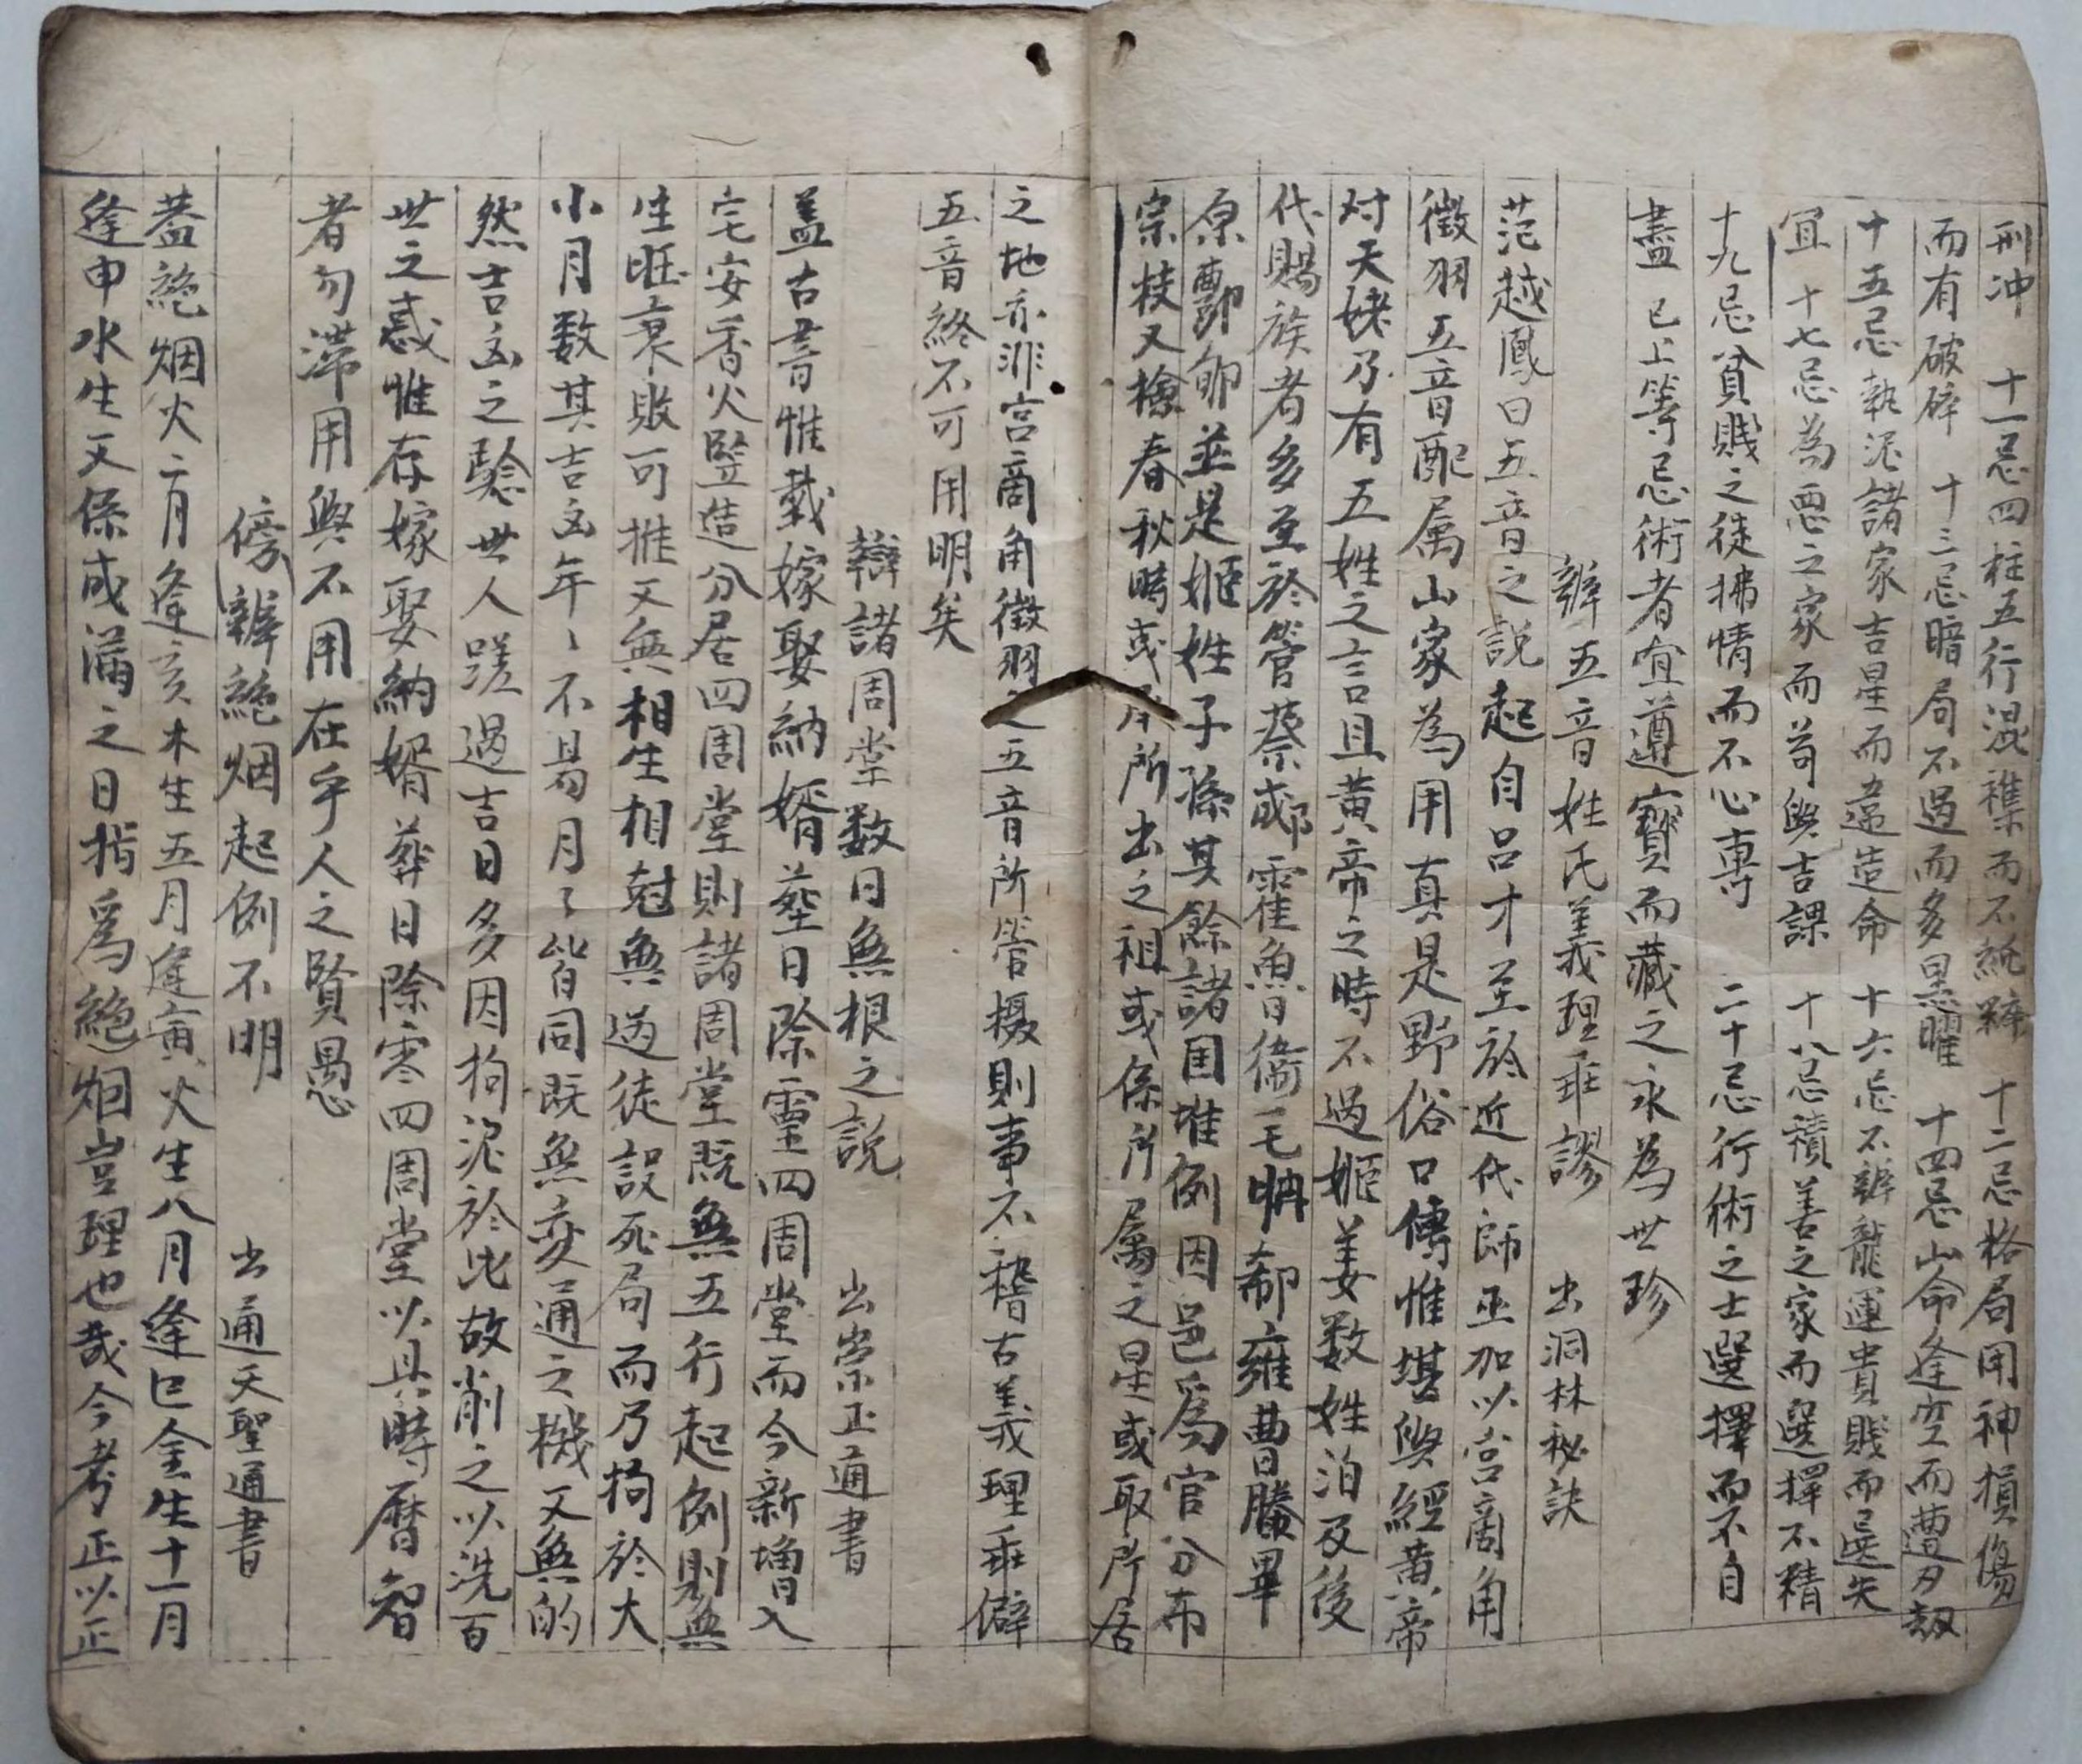 刑冲 十一忌四柱五行混襍而不純粹 十二忌格局用神損傷
而有破碎 十三忌暗局不過而多黑曜 十四忌山命逢空而遭刃刼
十五忌執泥諸家吉星而違造命 十六忌不辦龍運貴賤而選失
宜 十七忌為悪之家而苟與吉課 十八忌積善之家而選擇不精
十九忌貧賤之徒拂情而不心專 二十忌行術之士選擇而不自
盡 已上等忌術者宜遵寳而藏之永為世珍
辦五音姓氏義理乖謬 出洞林秘訣
范越鳳曰五音之説起自吕才至於近代師巫加以宫商角
徵羽五音配属山家為用真是野俗口傳惟堪與經黄帝
对天姥乃有五姓之言且黄帝之時不過姬姜数姓洎及後
代賜族者多至於管蔡郕霍魯衞毛聃郗雍曹滕畢
原酆郇並是姬姓子孫其餘諸国堆例因邑爲官分布
宗枝又檢春秋時或本所出之祖或係所属之星或取所居
之地亦非宫商角徵羽之五音所管摄則事不稽古義理乖僻
五音終不可用明矣
辯諸周堂数日無根之説 出崇正通書
盖古書惟載嫁娶納婿塟日除靈四周堂而今新增入
宅安香火竪造分居四周堂則諸周堂既無五行起例則無
生旺衰敗可推又無相生相尅無過徒設死局而乃拘於大
小月数其吉凶年〻不易月〻皆同既無变通之機又無的
然吉凶之騐世人蹉過吉日多因拘泥於此故削之以洗百
世之惑惟存嫁娶納婿葬日除灵四周堂以具時曆智
者勿滞用與不用在乎人之賢愚
傍辦絶烟起例不明 出通天聖通書
葢絶烟火二月逢亥木生五月逢寅火生八月逢巳金生十一月
逢申水生又係成滿之日指爲絶烟豈理也哉今考正以正